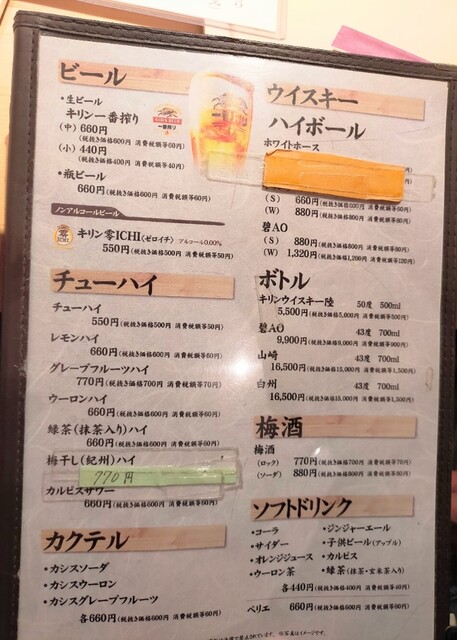 ビール
・生ビール
キリン一番搾り
(中) 660円
(税抜き価格600円 消費税額等60円)
(小) 440円
(税抜き価格400円 消費税額等40円)
・瓶ビール
660円(税抜き価格600円 消費税額等60円)
ノンアルコールビール
キリン零ICHI〈ゼロイチ〉 アルコール0.00%
550円(税抜き価格500円 消費税額等50円)
チューハイ
チューハイ
550円(税抜き価格500円 消費税額等50円)
レモンハイ
660円(税抜き価格600円 消費税額等60円)
グレープフルーツハイ
770円(税抜き価格700円 消費税額等70円)
ウーロンハイ
660円(税抜き価格600円 消費税額等60円)
緑茶(抹茶入り)ハイ
660円(税抜き価格600円 消費税額等60円)
梅干し(紀州)ハイ
770円
カルピスサワー
660円(税抜き価格600円 消費税額等60円)
カクテル
・カシスソーダ
・カシスウーロン
・カシスグレープフルーツ
各660円(税抜き価格600円 消費税額等60円)
ウイスキー
ハイボール
ホワイトホース
(S) 660円(税抜き価格600円 消費税額等60円)
(W) 880円(税抜き価格800円 消費税額等80円)
碧AO
(S) 880円(税抜き価格800円 消費税額等80円)
(W) 1,320円(税抜き価格1,200円 消費税額等120円)
ボトル
キリンウイスキー陸 50度 500ml
5,500円(税抜き価格5,000円 消費税額等500円)
碧AO 43度 700ml
9,900円(税抜き価格9,000円 消費税額等900円)
山崎 43度 700ml
16,500円(税抜き価格15,000円 消費税額等1,500円)
白州 43度 700ml
16,500円(税抜き価格15,000円 消費税額等1,500円)
梅酒
梅酒
(ロック) 770円(税抜き価格700円 消費税額等70円)
(ソーダ) 880円(税抜き価格800円 消費税額等80円)
ソフトドリンク
・コーラ ・ジンジャーエール
・サイダー ・子供ビール(アップル)
・オレンジジュース ・カルピス
・ウーロン茶 ・緑茶(抹茶・玄米茶入り)
各440円(税抜き価格400円 消費税額等40円)
ペリエ 660円(税抜き価格600円 消費税額等60円)
※写真はイメージです。